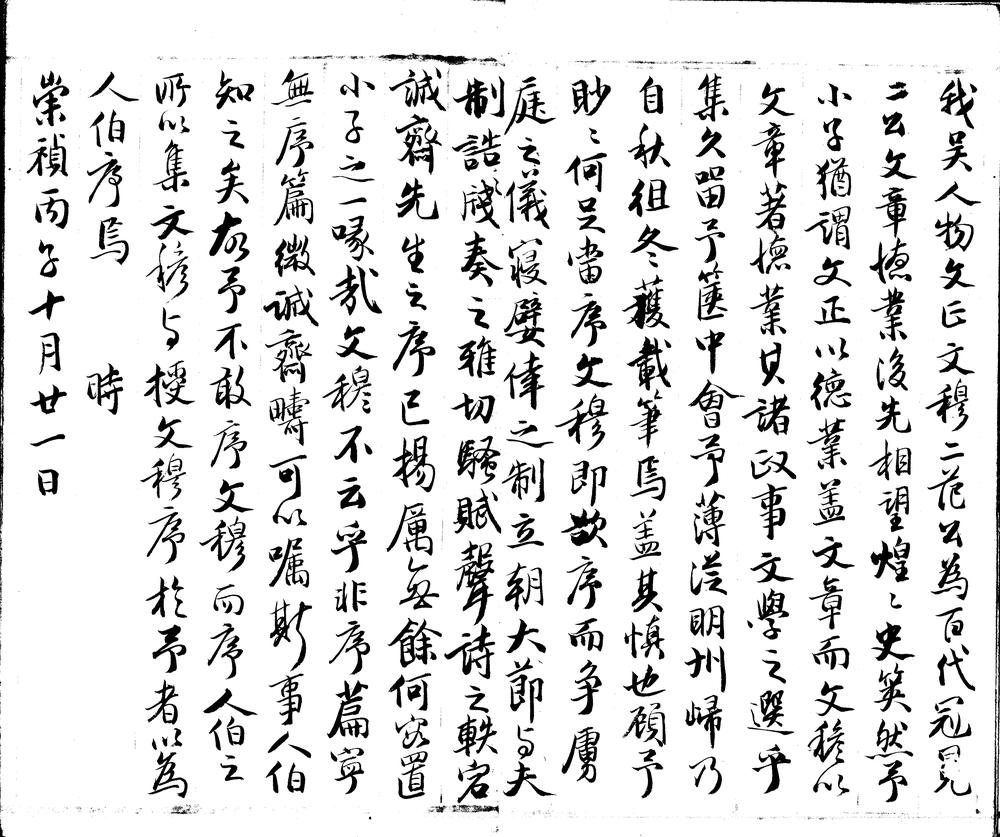 我吴人物文正文穆二范公為百代冠冕
二公文章德業後先相望煌〻史筴然予
小子猶謂文正以德業盖文章而文穆以
文章著德業其諸政事文學之選乎
集久留予篋中會予薄涖明州歸乃
自秋徂冬獲載筆焉盖其慎也顧予
眇〻何足當序文穆即欲序而争虜
庭之儀寝嬖倖之制立朝大節与夫
制誥牋奏之雅切騷賦聲詩之軼宕
誠齋先生之序已揚厲無餘何容置
小子之一喙哉文穆不云乎非序篇寧
無序篇微誠齋疇可以嘱斯事人伯
知之矣故予不敢序文穆而序人伯之
所以集文穆与授文穆序於予者以為
人伯序焉　時
崇禎丙子十月廿一日